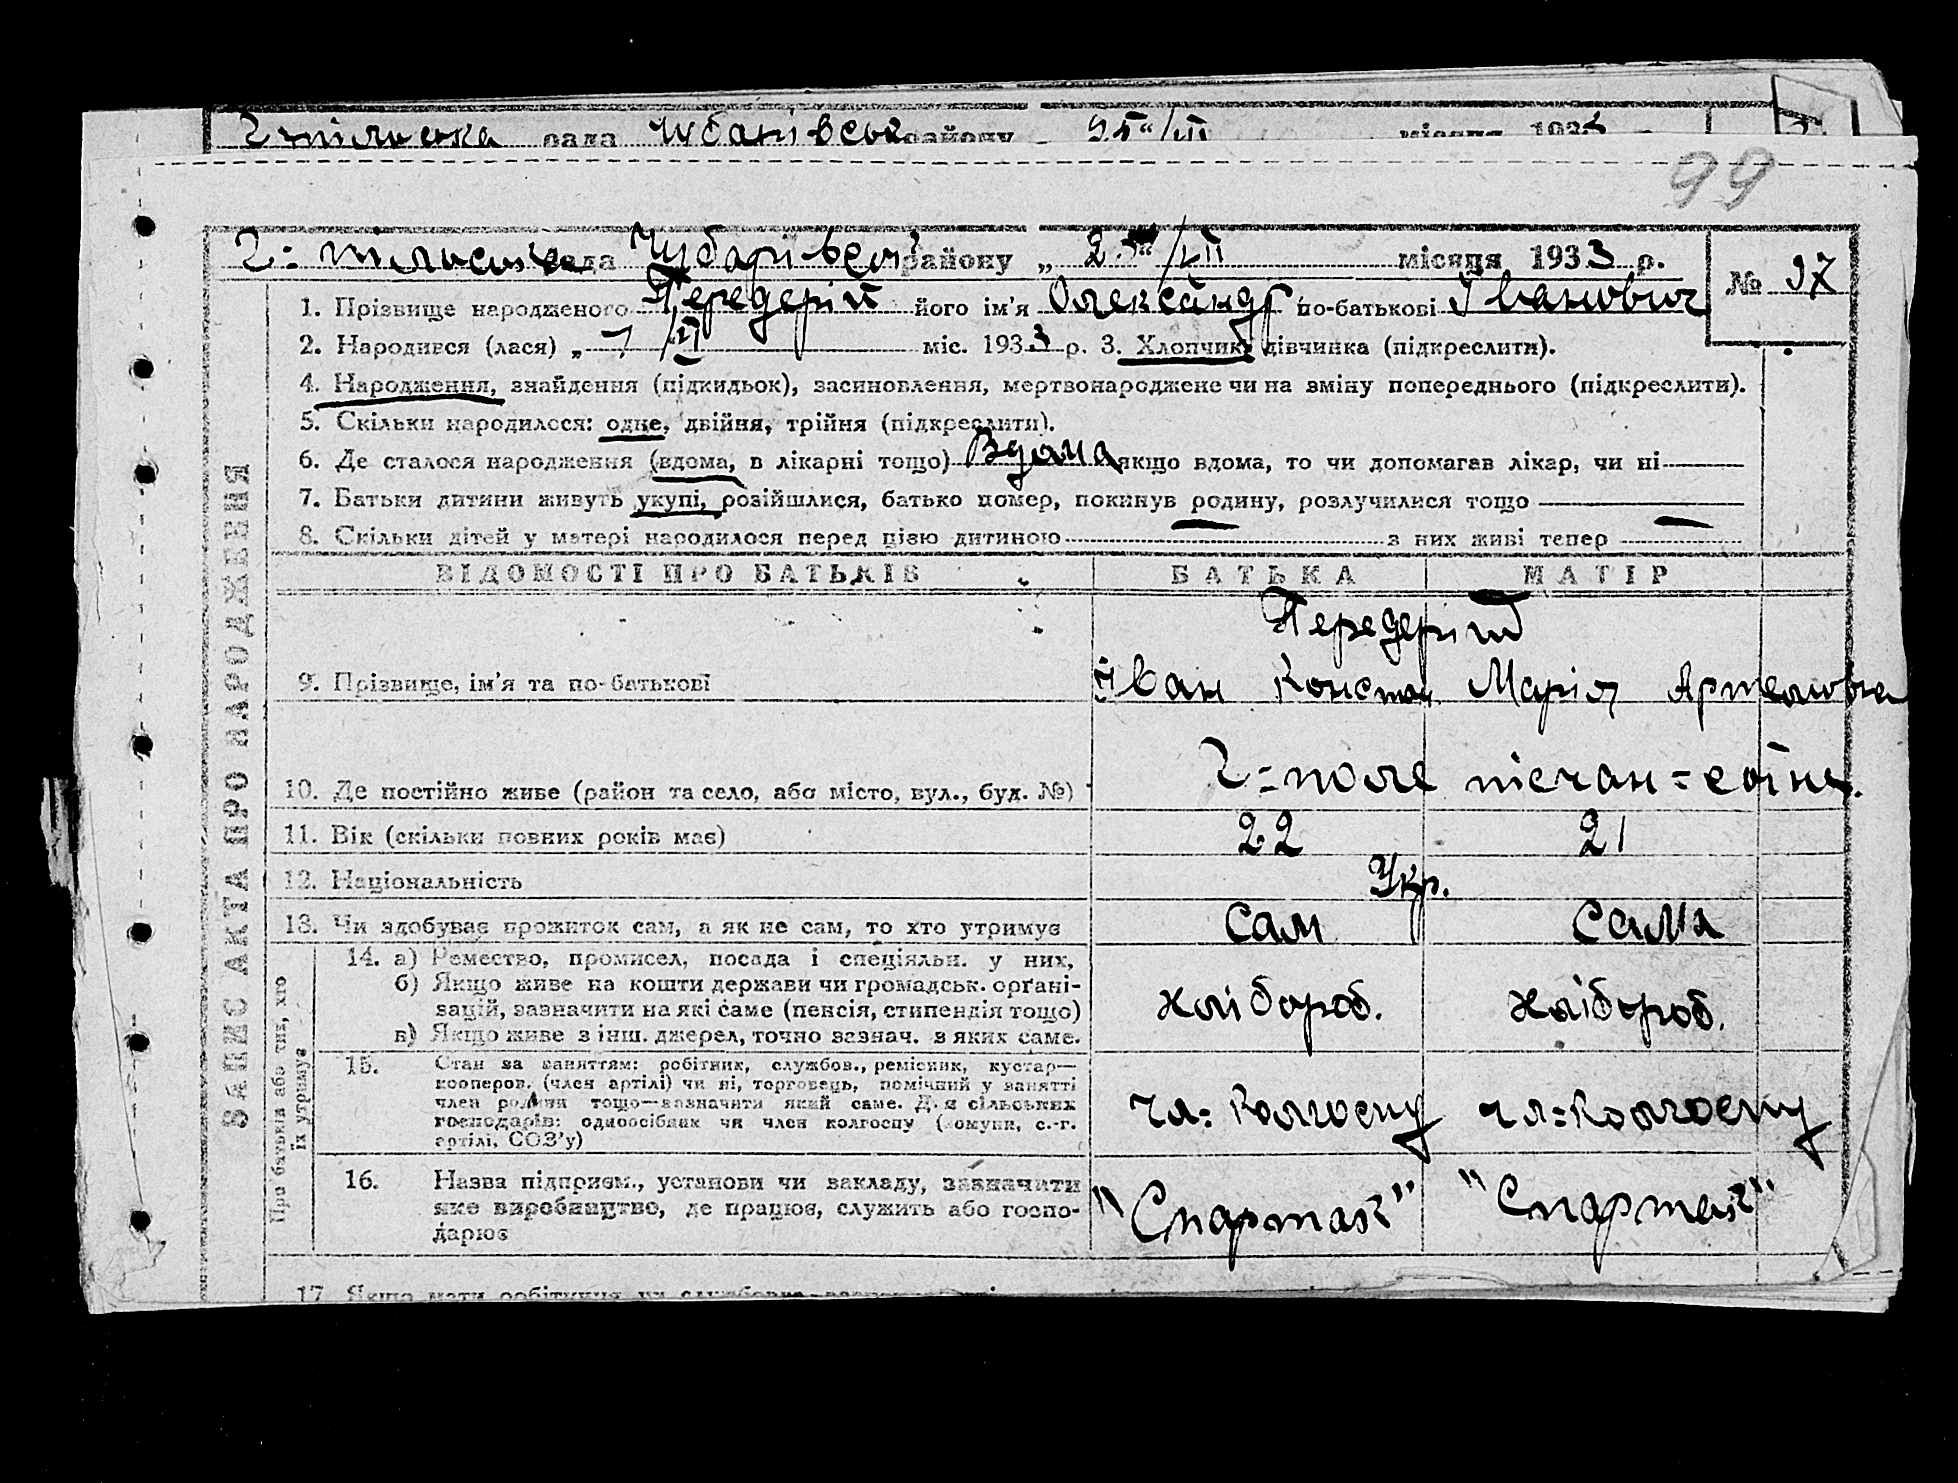 рада району місяця 193
99
Г=пільська рада Чубарівськ району „ 25"/III місяця 1933 р.
№ 97
1. Прізвище народженого Передерій його ім'я Олександр по-батькові Іванович
2. Народився (лася) „ 7/III міс. 1933 р. 3. Хлопчик, дівчинка (підкреслити).
4. Народження, знайдення (підкидьок), засиновлення, мертвонароджене чи на зміну попереднього (підкреслити).
5. Скільки народилося: одне, двійня, трійня (підкреслити).
6. Де сталося народження (вдома, в лікарні тощо) Вдома якщо вдома, то чи допомагав лікар, чи ні
7. Батьки дитини живуть укупі, розійшлися, батько помер, покинув родину, розлучилися тощо
8. Скільки дітей у матері народилося перед цією дитиною — з них живі тепер —
ЗАПИС АКТА ПРО НАРОДЖЕННЯ
ВІДОМОСТІ ПРО БАТЬКІВ БАТЬКА МАТІР
Передерій
9. Прізвище, ім'я та по-батькові Іван Констан. Марія Артемовна
10. Де постійно живе (район та село, або місто, вул., буд. №) Г=поле
11. Вік (скільки повних років має) 22 21
12. Національність Укр.
13. Чи здобуває прожиток сам, а як не сам, то хто утримує сам сама
Про батьків або тих, хто
їх утримує
14. а) Ремество, промисел, посада і спеціяльн. у них,
б) Якщо живе на кошти держави чи громадськ. орґані-
зацій, зазначити на які саме (пенсія, стипендія тощо) хлібороб. хлібороб.
в) Якщо живе з інш. джерел, точно зазнач. з яких саме.
15. Стан за заняттям: робітник, службов., ремісник, кустар—
кооперов. (член артілі) чи ні, торговець, помічний у занятті
член родини тощо—зазначити який саме. Для сільських
господарів: одноосібник чи член колгоспу (комуни, с.-г.
артілі, СОЗ'у) чл=колгоспу чл=колгоспу
16. Назва підприєм., установи чи закладу, зазначити
яке виробництво, де працює, служить або госпо-
дарює "Спартак" "Спартак"
17. Якщо мати робітниця чи службовка